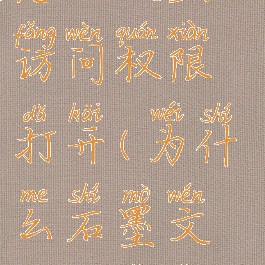 fǎng wèn quán xiàn
访问权限
dǎ kāi wéi shí
打开(为什
me shí mò wén
么石墨文